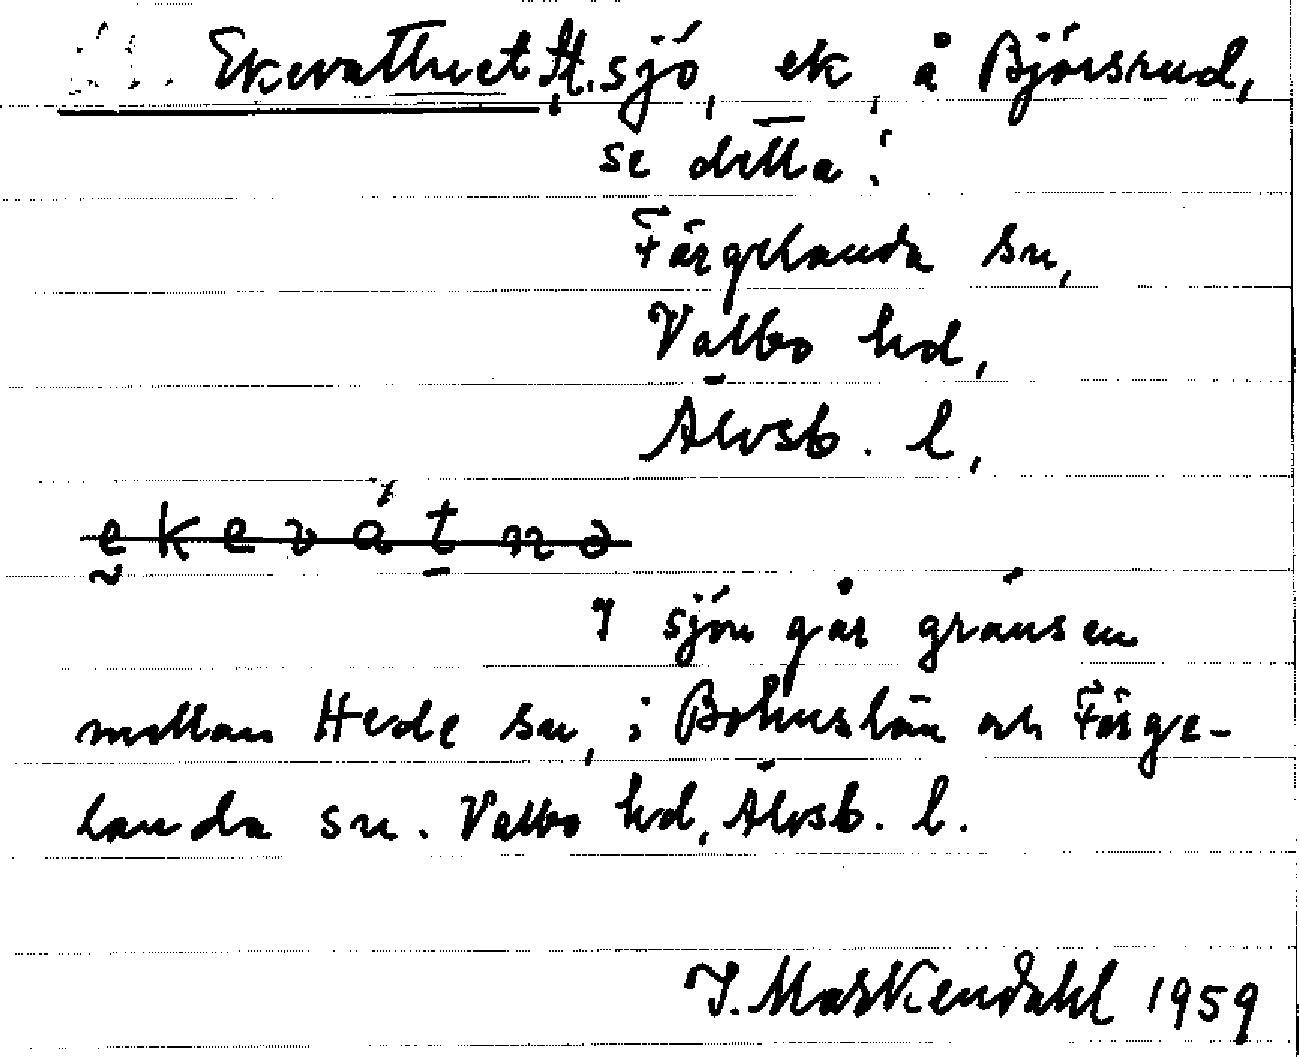 Ekevattnet St. sjö, ek å Björsrud,
se detta!
Färgelanda sn,
Valbo hd,
Älvsb. l,
ekevátnə
I sjön går gränsen
mellan Hede sn, i Bohuslän och Färge-
landa sn. Valbo hd, Älvsb. l.
J. Markendahl 1959